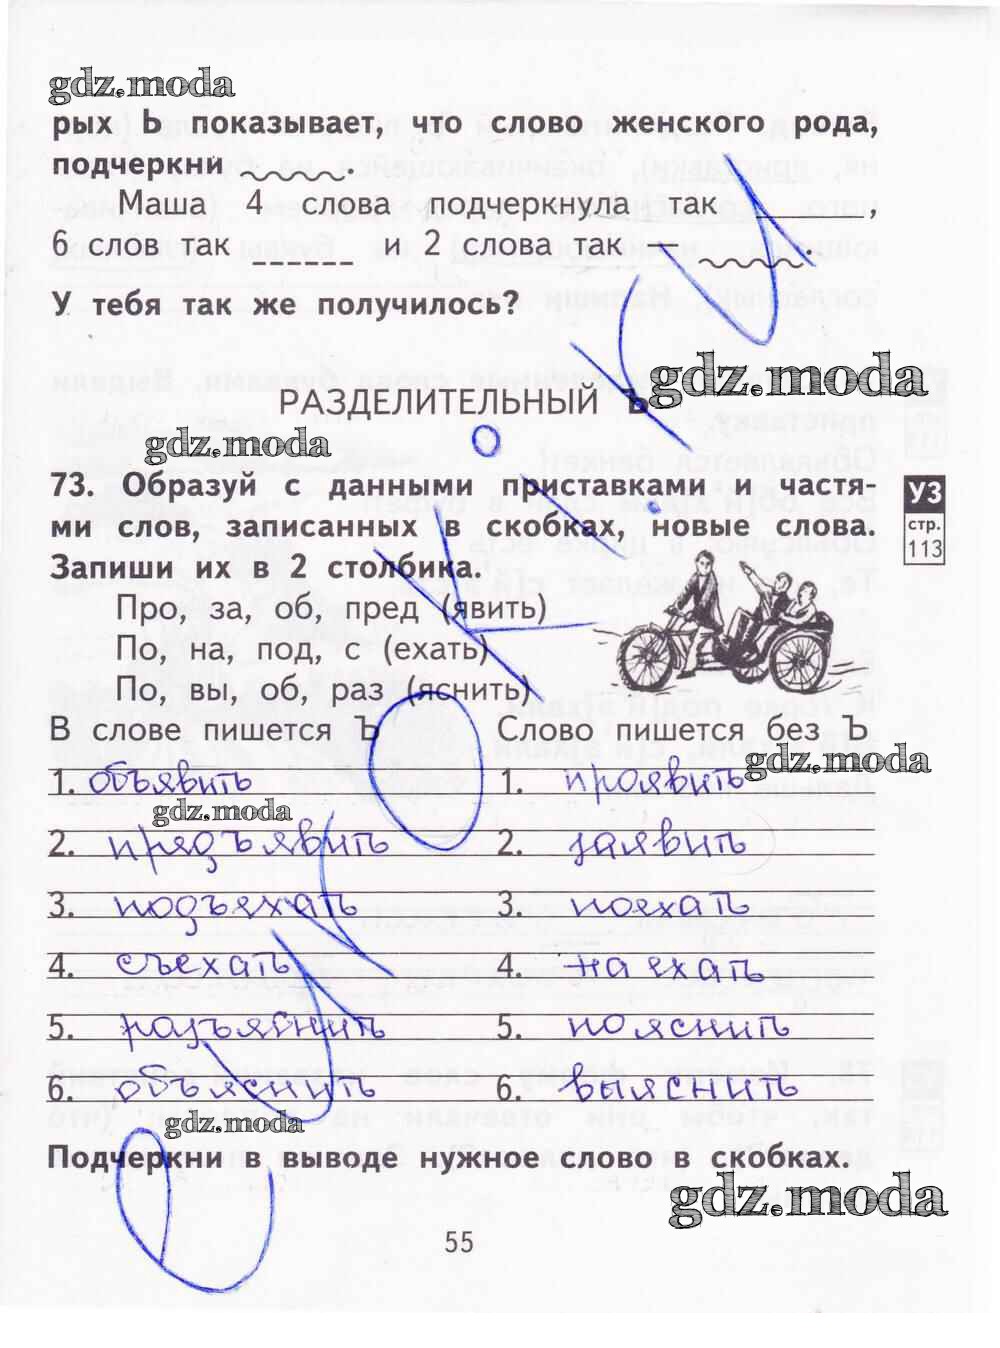 gdz.moda
рых Ь показывает, что слово женского рода,
подчеркни .
Маша 4 слова подчеркнула так ,
6 слов так и 2 слова так .
У тебя так же получилось?
gdz.moda
РАЗДЕЛИТЕЛЬНЫЙ Ъ
gdz.moda
73. Образуй с данными приставками и частя-
ми слов, записанных в скобках, новые слова.
Запиши их в 2 столбика.
УЗ
стр.
113
Про, за, об, пред (явить)
По, на, под, с (ехать)
По, вы, об, раз (яснить)
В слове пишется Ъ Слово пишется без Ъ
gdz.moda
1. объявить 1. проявить
gdz.moda
2. предъявить 2. заявить
3. подъехать 3. поехать
4. съехать 4. наехать
5. разъяснить 5. пояснить
6. объяснить 6. выяснить
gdz.moda
Подчеркни в выводе нужное слово в скобках.
gdz.moda
55